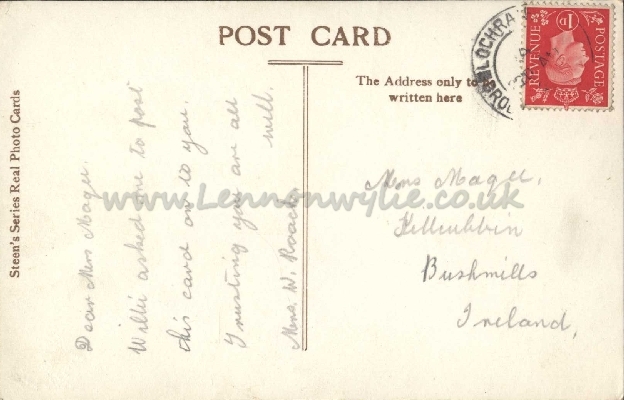 POST CARD
The Address only to be
written here
LOCHRA
BROD
REVENUE
1D
POSTAGE
Steen's Series Real Photo Cards
Dear Mrs Magee.
Willie asked me to post
this card on to you.
Trusting you are all
well.
Mrs. W. Roach
Mrs Magee,
Bushmills
Ireland,
www.Lennonwylie.co.uk